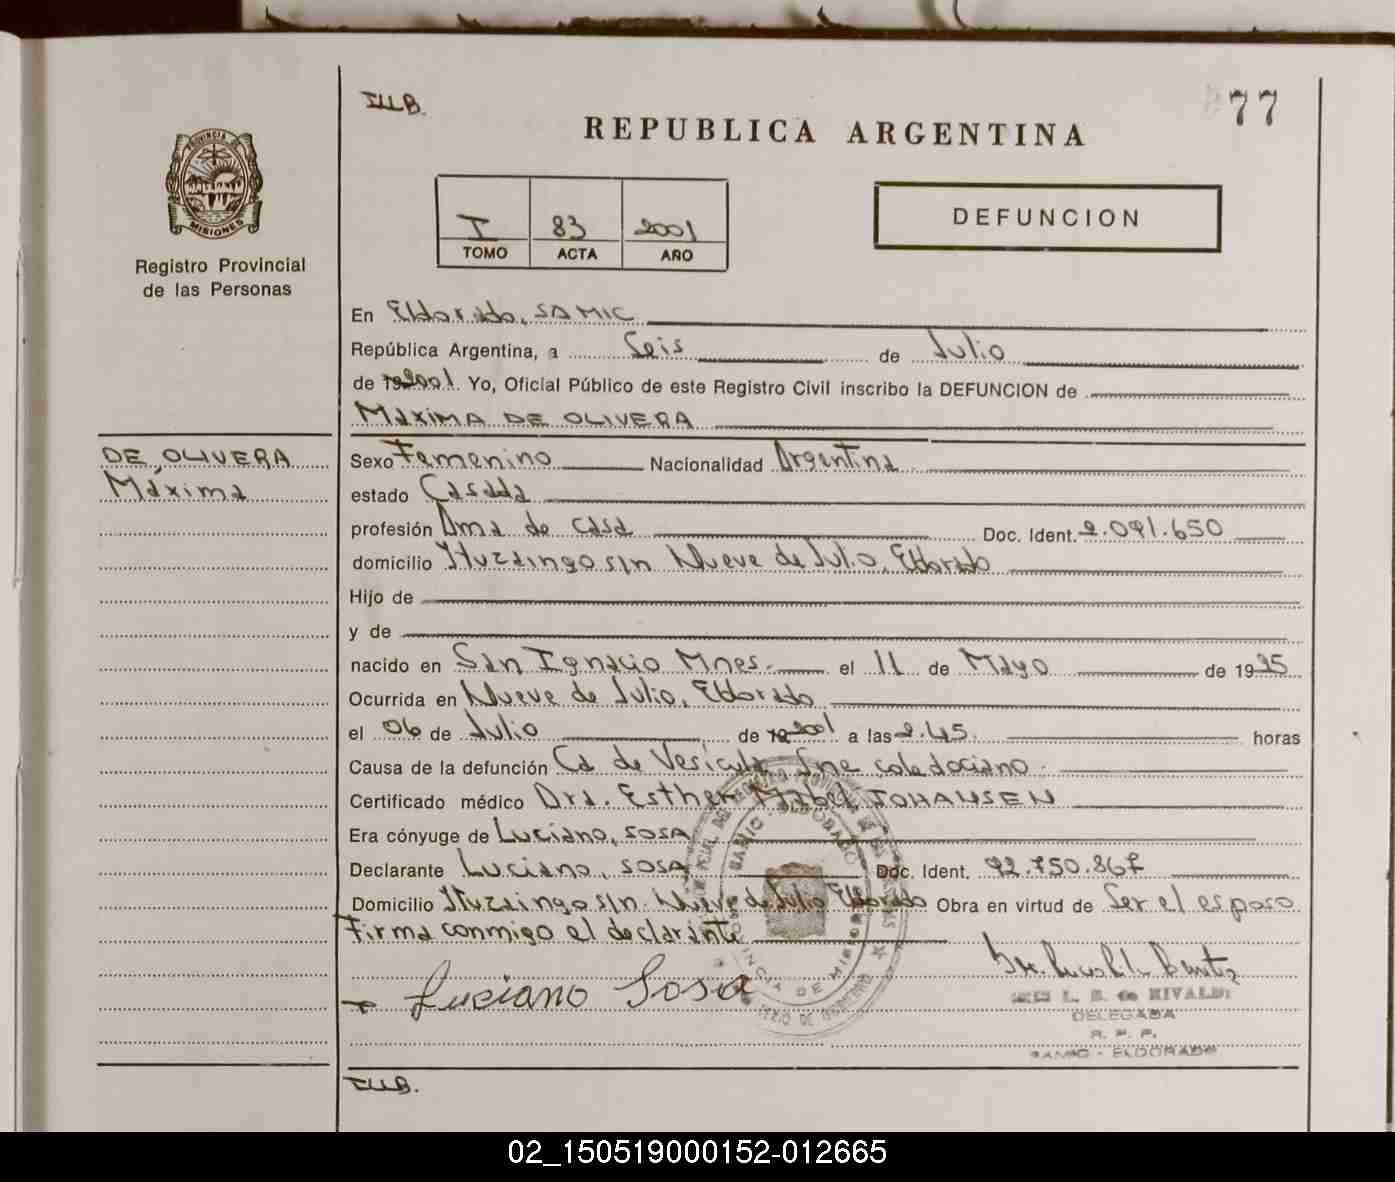 ILLB.
77
REPUBLICA ARGENTINA
PROVINCIA DE
MISIONES
Registro Provincial
de las Personas
I 83 2001
TOMO ACTA AÑO
DEFUNCION
En Eldorado, SAMIC
República Argentina, a Seis de Julio
de 2001. Yo, Oficial Público de este Registro Civil inscribo la DEFUNCION de
MáxIMA DE OLIVERA
DE OLIVERA
Máxima
Sexo Femenino Nacionalidad Argentina
estado Casada
profesión Ama de casa Doc. Ident. 2.091.650
domicilio Ituzaingo s/n Nueve de Julio, Eldorado
Hijo de
y de
nacido en San Ignacio Mnes. el 11 de Mayo de 19
Ocurrida en Nueve de Julio, Eldorado
el 06 de Julio de 2001 a las 2.45. horas
Causa de la defunción Ca de Vesícula coledociano
Certificado médico Dra. Esther Mabel JOHANSEN
Era cónyuge de Luciano, SOSA
Declarante Luciano, SOSA Doc. Ident. 92.750.867
Domicilio Ituzaingo s/n Nueve de Julio Eldorado Obra en virtud de Ser el esposo
Firma conmigo el declarante
Luciano Sosa
L. B. de RIVALDI
DELEGADA
R. P. P.
SAMIC - ELDORADO
SAMIC - ELDORADO
PROVINCIA DE MISIONES
ILLB.
02_150519000152-012665